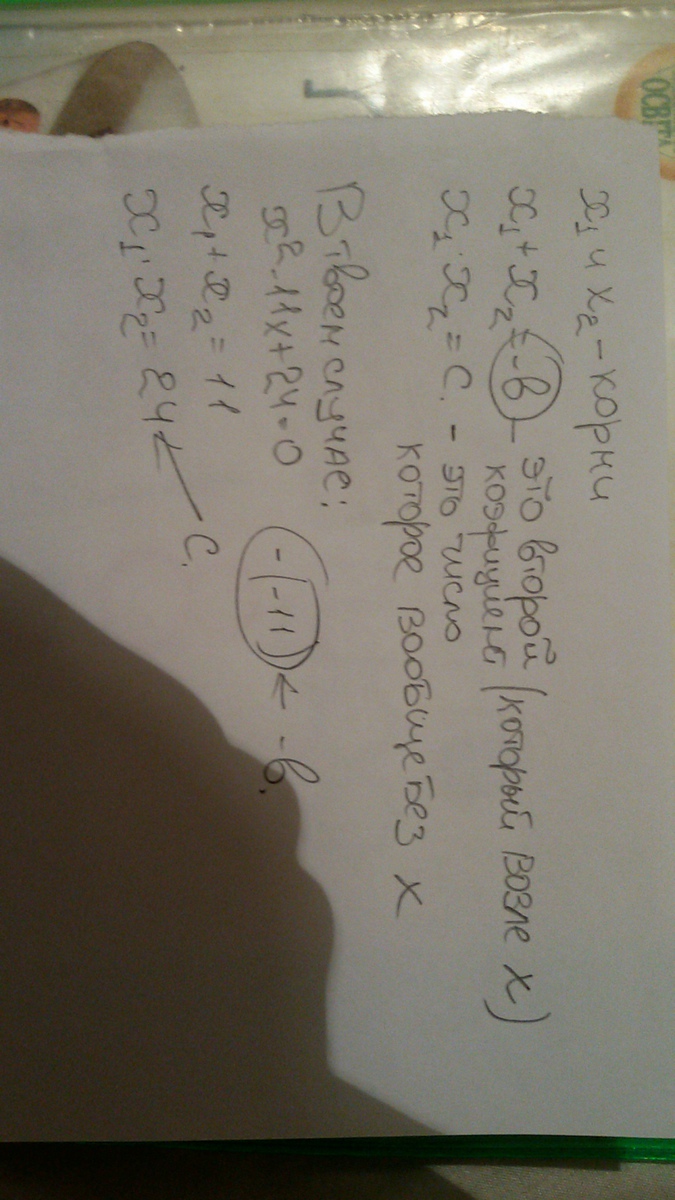 x₁ и x₂ - корни
x₁ + x₂ = -в - это второй
коэфициент (который возле x)
x₁ · x₂ = C. - это число
которое вообще без x
В твоем случае:
x² - 11x + 24 = 0
-(-11) ← -в.
x₁ + x₂ = 11
x₁ · x₂ = 24 ← C.
ОСВІТА